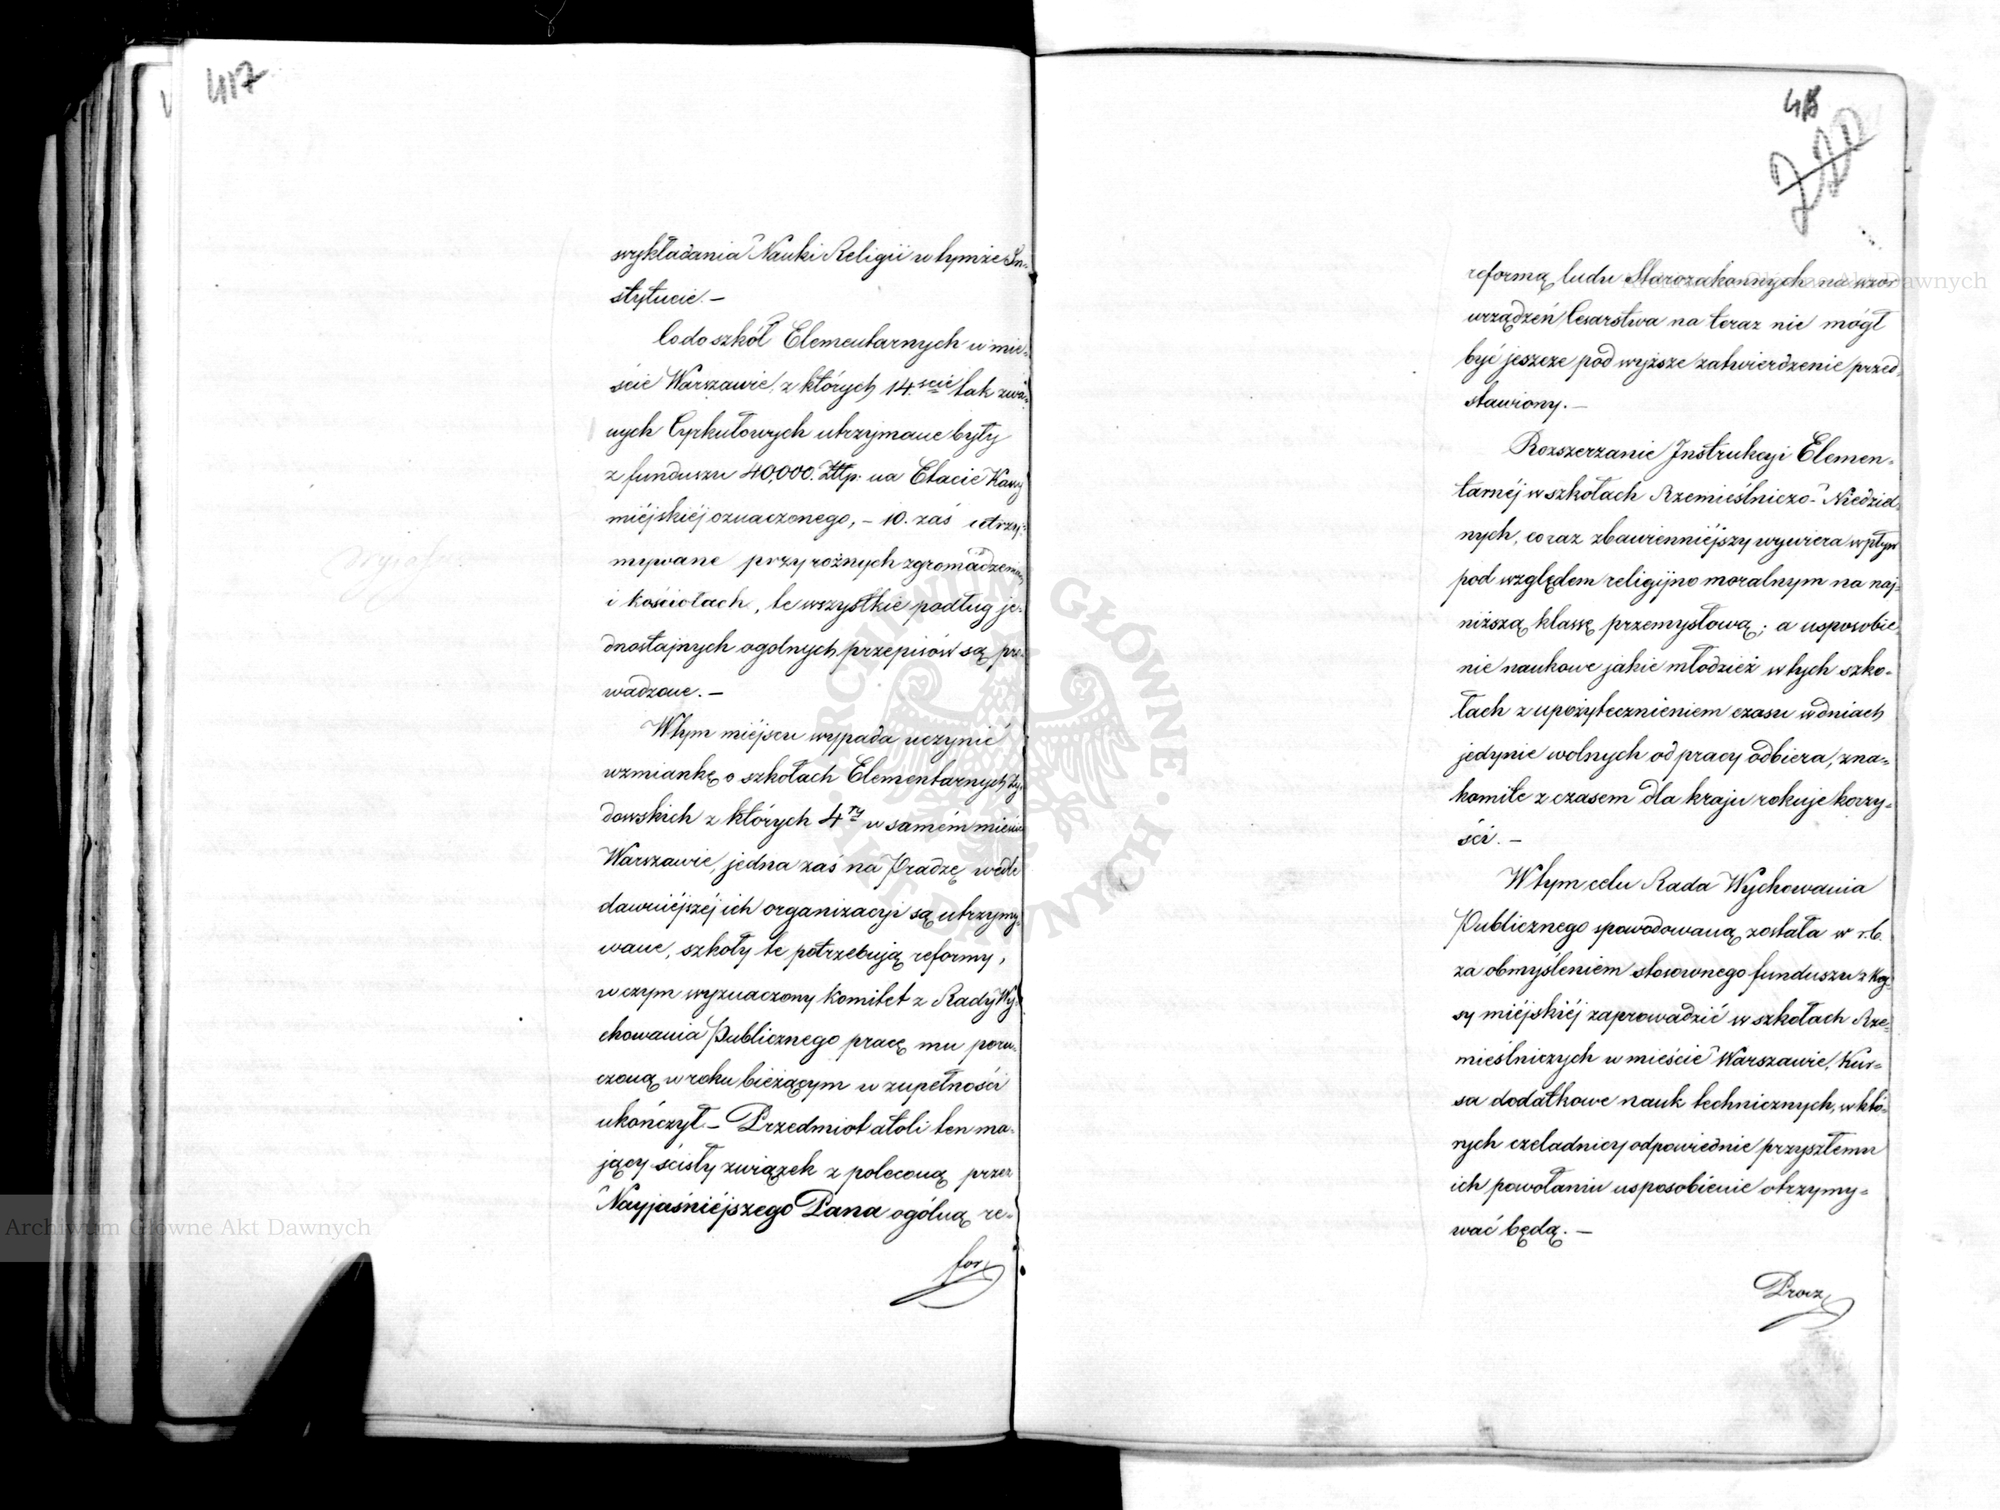 417
wykładania Nauki Religii w tymże In-
stytucie. –
Co do szkół Elementarnych w mie-
ście Warszawie, z których 14.ście tak zwa-
nych Cyrkułowych utrzymane były
z funduszu 40,000. Złtp. na Etacie Kassy
miéjskiéj oznaczonego, – 10. zaś utrzy-
mywane przy rożnych zgromadzeniach
i kościołach, te wszystkie podług je-
dnostajnych ogolnych przepisów są pro-
wadzone. –
W tym miéjscu wypada uczynić
wzmiankę o szkołach Elementarnych Ży-
dowskich z których 4ry w samém mieście
Warszawie, jedna zaś na Pradze, wedle
dawniéjszéj ich organizacyi są utrzymy-
wane, szkoły te potrzebują reformy,
w czym wyznaczony Komitet z Rady Wy-
chowania Publicznego pracę mu poru-
czoną w roku bieżącym w zupełności
ukończył – Przedmiot atoli ten ma-
jący ścisły związek z poleconą przez
Nayjaśniéjszego Pana ogólną re-
for
418
220
reformą ludu Starozakonnych na wzor
urządzeń Cesarstwa na teraz nie mógł
być jeszcze pod wyższe zatwierdzenie przed-
stawiony. –
Rozszerzanie Instrukcyi Elemen-
tarnéj w szkołach Rzemieślniczo-Niedziel-
nych, coraz zbawienniéjszy wywiera wpływ
pod względem religijno moralnym na naj-
niższą klassę przemysłową; a usposobie-
nie naukowe jakie młodzież w tych szko-
łach z upożytecznieniem czasu w dniach
jedynie wolnych od pracy odbiera, zna-
komite z czasem dla kraju rokuje korzy-
ści. –
W tym celu Rada Wychowania
Publicznego spowodowaną została w r.b.
za obmyśleniem stosownego funduszu z Kas-
sy miéjskiéj zaprowadzić w szkołach Rze-
mieślniczych w mieście Warszawie, Kur-
sa dodatkowe nauk technicznych, w któ-
rych czeladnicy odpowiednie przyszłemu
ich powołaniu usposobienie otrzymy-
wać będą. –
Procz
Archiwum Główne Akt Dawnych
Archiwum Główne Akt Dawnych
ARCHIWUM GŁÓWNE AKT DAWNYCH